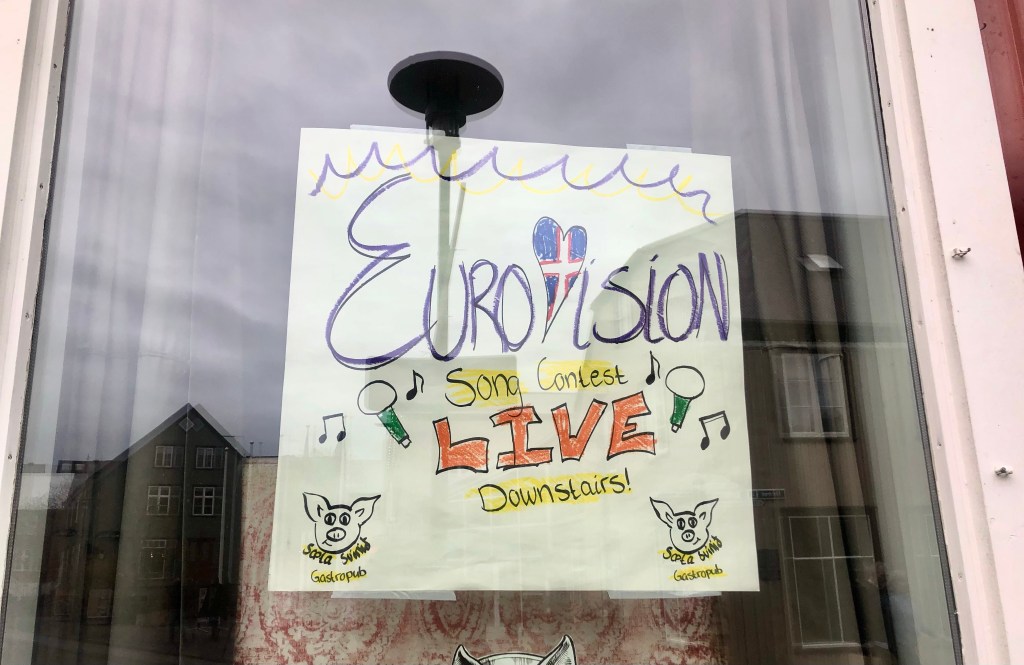 EUROVISION
Song Contest
LIVE
Downstairs!
Sæta Svínið
Gastropub
Sæta Svínið
Gastropub